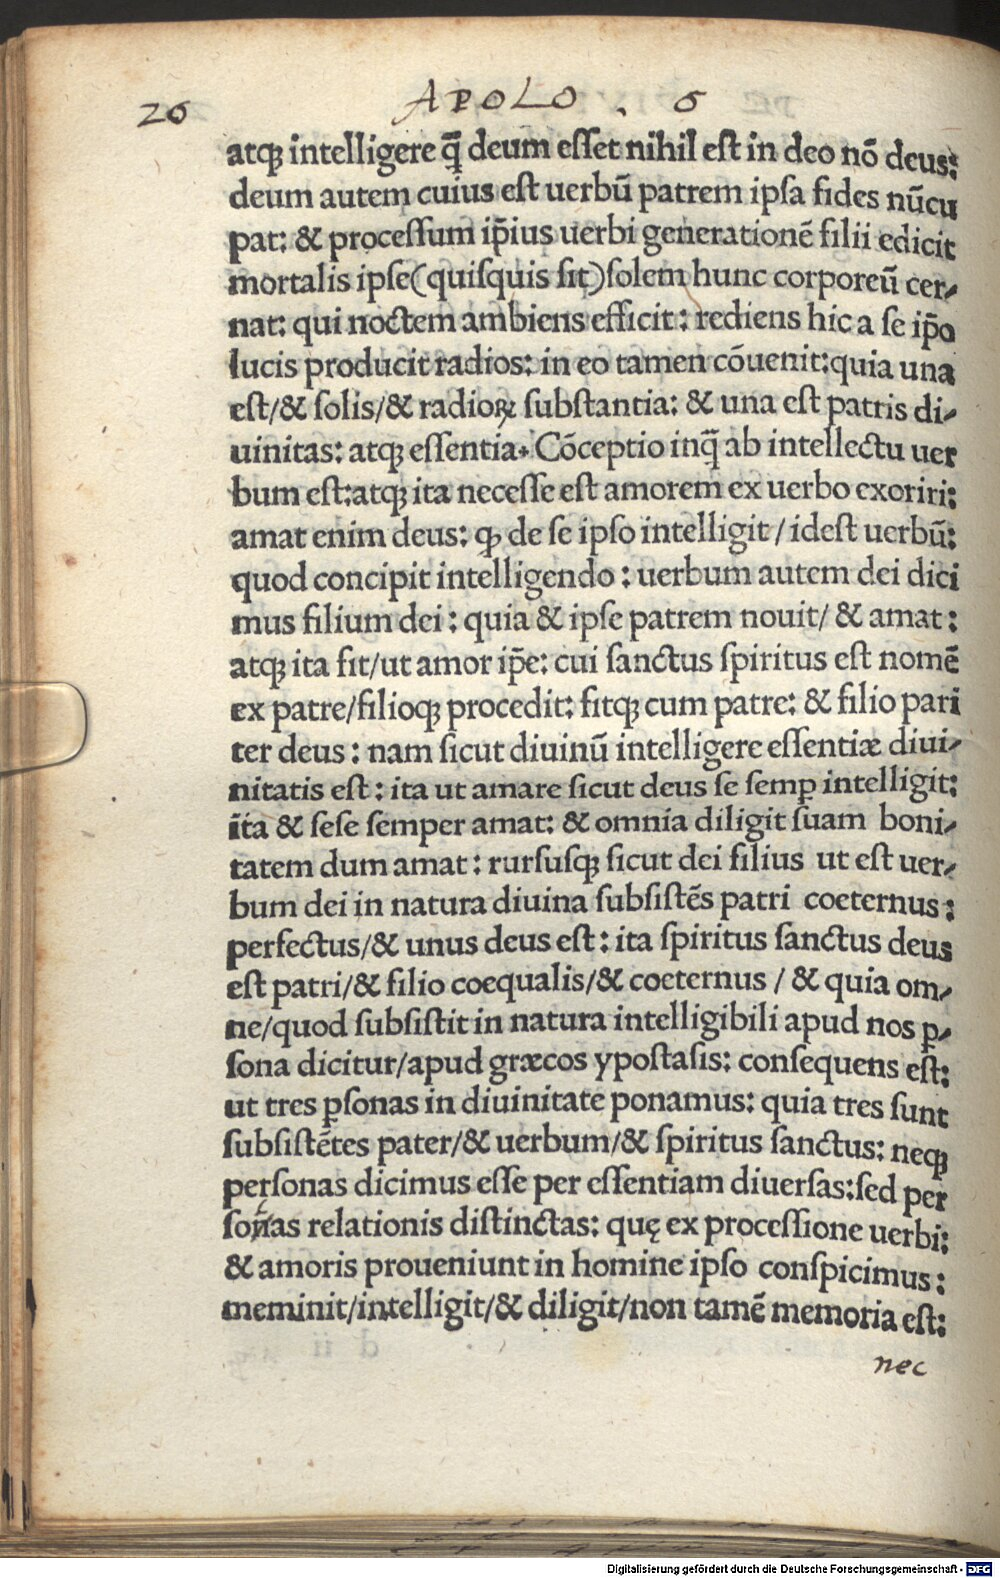 26 APOLO . 6
atqꝫ intelligere q̄ deum eſſet nihil eſt in deo nō deus:
deum autem cuius eſt uerbū patrem ipſa fides nūcu
pat: & proceſſum ip̄ius uerbi generationē filii edicit
mortalis ipſe(quiſquis ſit)ſolem hunc corporeū cer-
nat: qui noctem ambiens efficit: rediens hic a ſe ip̄o
lucis producit radios: in eo tamen cōuenit:quia una
eſt/& ſolis/& radioꝝ ſubſtantia: & una eſt patris di-
uinitas: atqꝫ eſſentia. Cōceptio inq̄ ab intellectu uer
bum eſt:atqꝫ ita neceſſe eſt amorem ex uerbo exoriri:
amat enim deus: ꝙ de ſe ipſo intelligit/ideſt uerbū:
quod concipit intelligendo: uerbum autem dei dici
mus filium dei: quia & ipſe patrem nouit/& amat:
atqꝫ ita fit/ut amor ip̄e: cui ſanctus ſpiritus eſt nomē
ex patre/filioqꝫ procedit: fitqꝫ cum patre: & filio pari
ter deus: nam ſicut diuinū intelligere eſſentiæ diui-
nitatis eſt: ita ut amare ſicut deus ſe ſemꝑ intelligit:
ita & ſeſe ſemper amat: & omnia diligit ſuam boni-
tatem dum amat: rurſuſqꝫ ſicut dei filius ut eſt uer-
bum dei in natura diuina ſubſiſtēs patri coeternus:
perfectus/& unus deus eſt: ita ſpiritus ſanctus deus
eſt patri/& filio coequalis/& coeternus / & quia om-
ne/quod ſubſiſtit in natura intelligibili apud nos ꝑ-
ſona dicitur/apud græcos ypoſtaſis: conſequens eſt:
ut tres ꝑſonas in diuinitate ponamus: quia tres ſunt
ſubſiſtētes pater/& uerbum/& ſpiritus ſanctus: neqꝫ
perſonas dicimus eſſe per eſſentiam diuerſas:ſed per
ſonas relationis diſtinctas: quę ex proceſſione uerbi:
& amoris proueniunt in homine ipſo conſpicimus:
meminit/intelligit/& diligit/non tamē memoria eſt:
nec
Digitalisierung gefördert durch die Deutsche Forschungsgemeinschaft - DFG